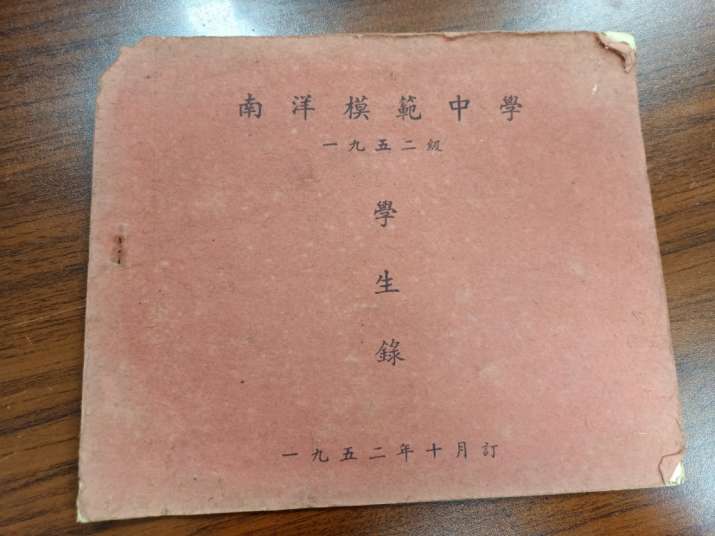 南洋模範中學
一九五二級
學
生
錄
一九五二年十月訂